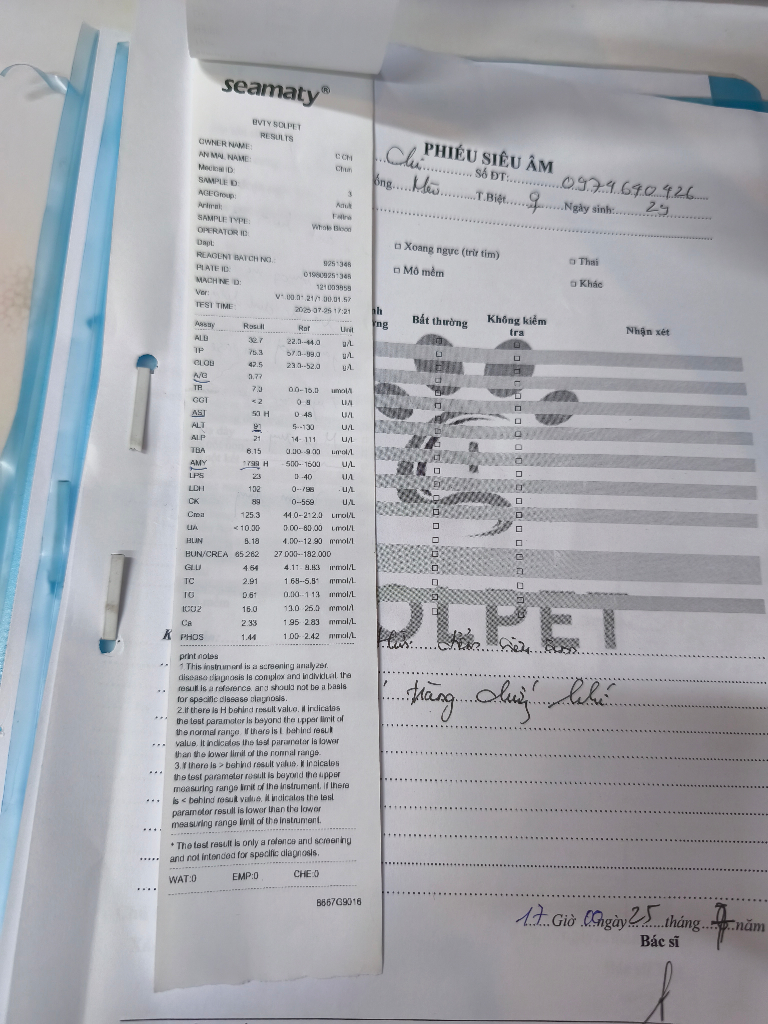 seamaty®
BVTY SOLPET
RESULTS
OWNER NAME:
ANIMAL NAME: C CHI
Medical ID: Chun
SAMPLE ID:
AGEGroup: 3
Animal: Adult
SAMPLE TYPE: Feline
OPERATOR ID: Whole Blood
Dept:
REAGENT BATCH NO.: 8251346
PLATE ID: 019809251346
MACHINE ID: 121003858
Ver: V1.00.01.21/1.00.01.57
TEST TIME: 2025-07-25 17:21
Assay Result Ref Unit
ALB 32.7 22.0--44.0 g/L
TP 75.3 57.0--89.0 g/L
GLOB 42.5 23.0--52.0 g/L
A/G 0.77
TB 7.0 0.0--15.0 umol/L
GGT <2 0--8 U/L
AST 50 H 0--48 U/L
ALT 91 5--130 U/L
ALP 21 14--111 U/L
TBA 6.15 0.00--9.00 umol/L
AMY 1799 H 500--1500 U/L
LPS 23 0--40 U/L
LDH 102 0--798 U/L
CK 89 0--559 U/L
Crea 125.3 44.0--212.0 umol/L
UA <10.00 0.00--60.00 umol/L
BUN 8.18 4.00--12.90 mmol/L
BUN/CREA 65.282 27.000--182.000
GLU 4.64 4.11--8.83 mmol/L
TC 2.91 1.68--5.81 mmol/L
TG 0.61 0.00--1.13 mmol/L
tCO2 16.0 13.0--25.0 mmol/L
Ca 2.33 1.95--2.83 mmol/L
PHOS 1.44 1.00--2.42 mmol/L
print notes
1.This instrument is a screening analyzer.
disease diagnosis is complex and individual, the
result is a reference, and should not be a basis
for specific disease diagnosis.
2.If there is H behind result value, it indicates
the test parameter is beyond the upper limit of
the normal range. If there is L behind result
value, it indicates the test parameter is lower
than the lower limit of the normal range.
3.If there is > behind result value, it indicates
the test parameter result is beyond the upper
measuring range limit of the instrument. If there
is < behind result value, it indicates the test
parameter result is lower than the lower
measuring range limit of the instrument.
* The test result is only a refence and screening
and not intended for specific diagnosis.
WAT:0 EMP:0 CHE:0
B667G9016
PHIẾU SIÊU ÂM
Chi Số ĐT: 0974640426
ống Mèo T.Biệt ♀ Ngày sinh: 2g
Xoang ngực (trừ tim) Thai
Mô mềm Khác
Bất thường Không kiểm tra Nhận xét
SOLPET
tràng chứa khí
17 Giờ 00 ngày 25 tháng 7 năm
Bác sĩ